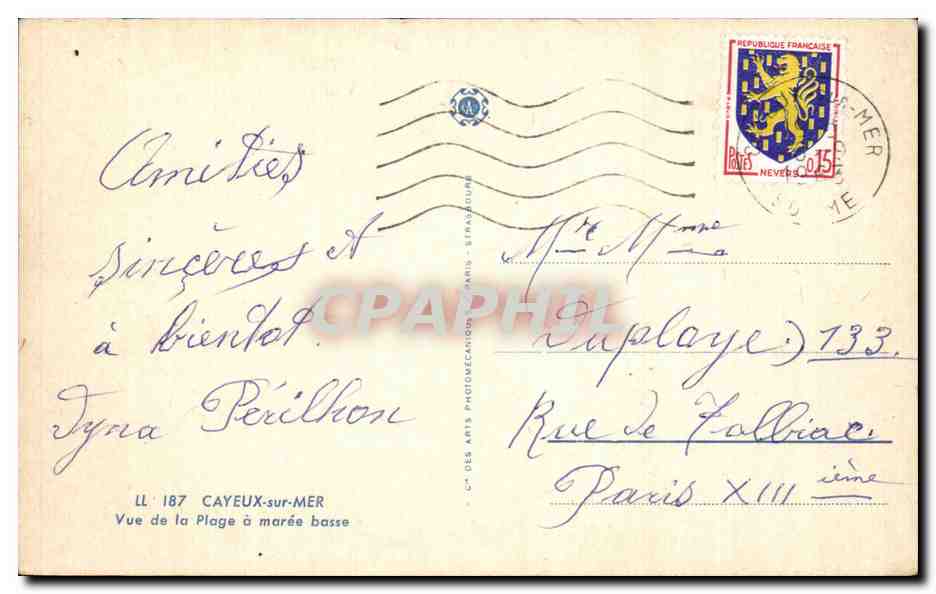 Amitiés
sincères et
à bientot.
Dyna Périlhon
LL 187 CAYEUX-sur-MER
Vue de la Plage à marée basse
Cie DES ARTS PHOTOMÉCANIQUES - PARIS - STRASBOURG
CPAPHIL
RÉPUBLIQUE FRANÇAISE
POSTES
0,15
NEVERS
R-MER
ME
Mr et Mme
Duplaye. 133.
Rue de Tolbiac.
Paris XIII ième